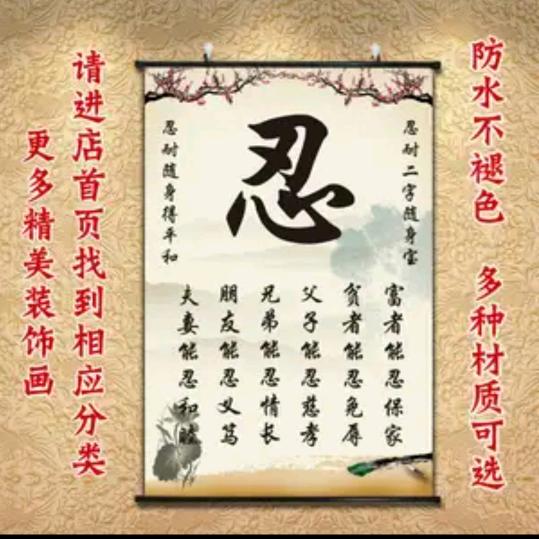 防水不褪色 多种材质可选
请进店首页找到相应分类
更多精美装饰画
忍
忍耐二字随身宝
忍耐随身得平和
富者能忍保家
贫者能忍免辱
父子能忍慈孝
兄弟能忍情长
朋友能忍义笃
夫妻能忍和睦